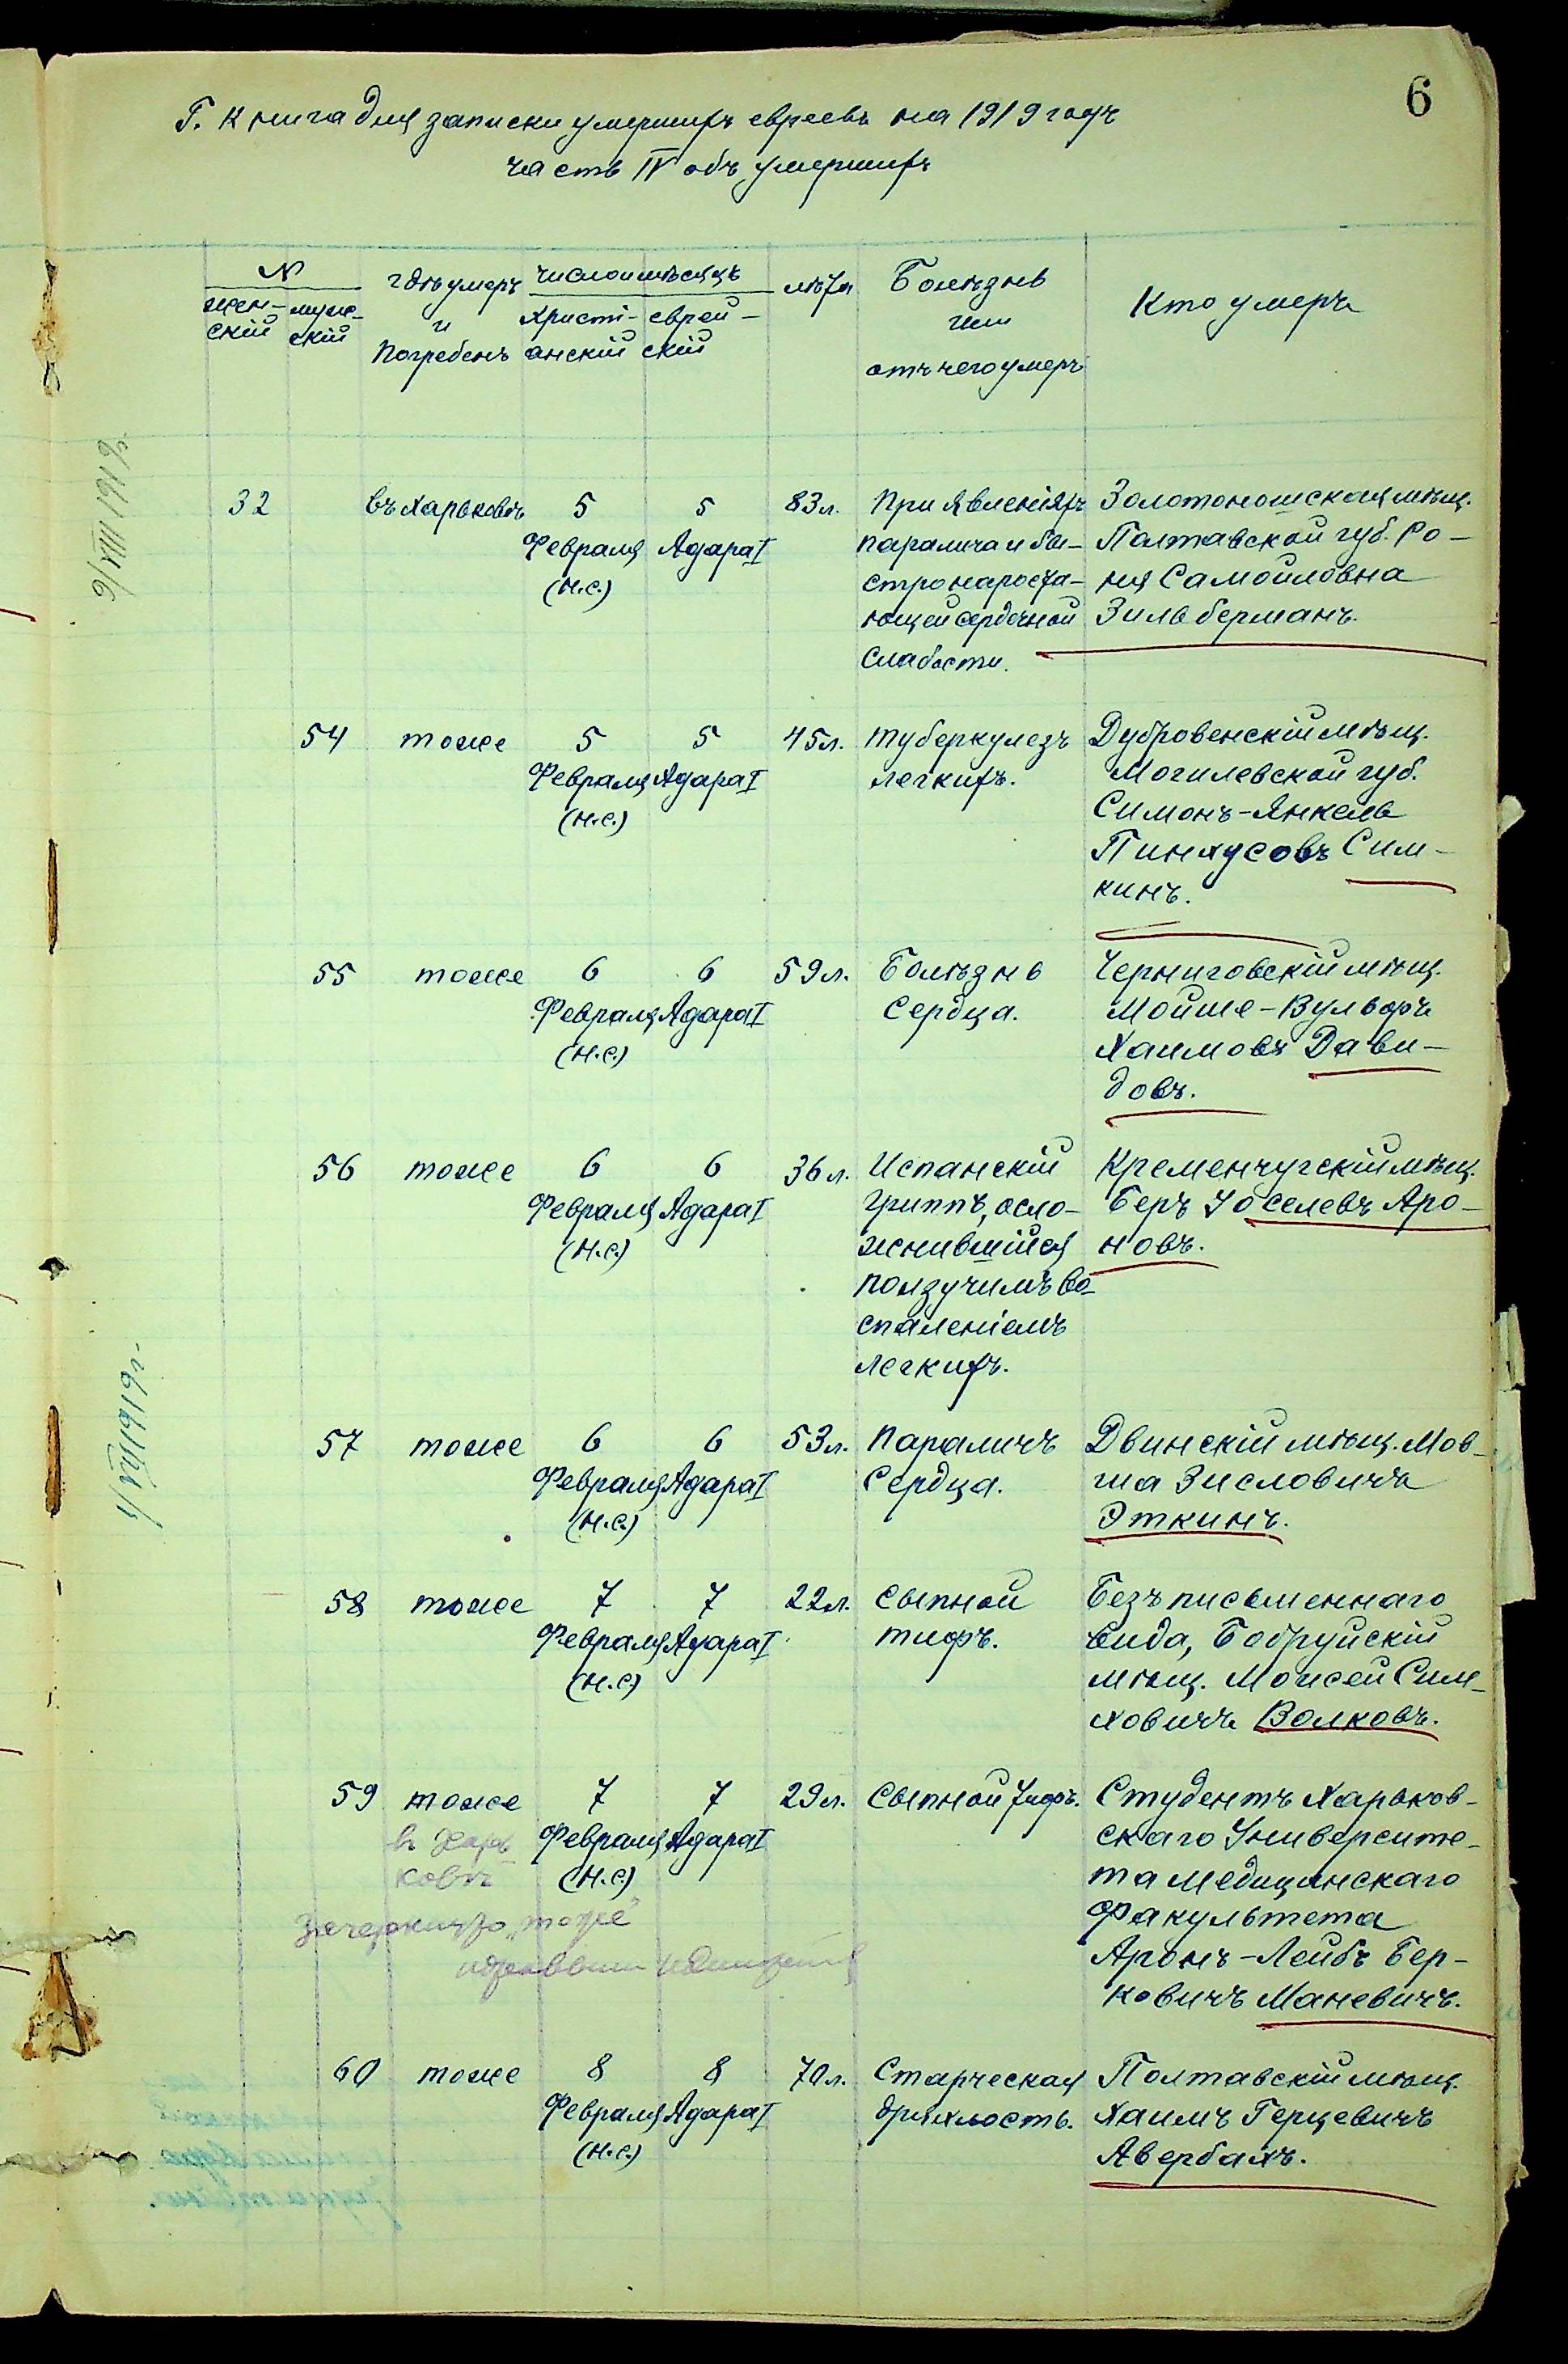 6
Г. Книга для записки умершихъ евреевъ на 1919 годъ
часть IV объ умершихъ
N
женскій
мужескій
гдѣ умеръ
и
погребенъ
число и мѣсяцъ
христі-
анскій
еврей-
скій
лѣта
Болѣзнь
или
отъ чего умеръ
Кто умеръ
9/VIII 1919г.
32 въ Харьковѣ 5 5 83 л. При явленіяхъ Золотоношская мѣщ.
Февраля Адара I паралича и бы- Полтавской губ. Ро-
(н.с.) стро нароста- ня Самойловна
ющей сердечной Зильберманъ.
слабости.
54 тоже 5 5 45 л. туберкулезъ Дубровенскій мѣщ.
Февраля Адара I легкихъ. Могилевской губ.
(н.с.) Симонъ-Янкель
Пинхусовъ Сим-
кинъ.
55 тоже 6 6 59 л. Болѣзнь Черниговскій мѣщ.
Февраля Адара I сердца. Мойше-Вульфъ
(н.с.) Хаимовъ Дави-
довъ.
56 тоже 6 6 36 л. Испанскій Кременчугскій мѣщ.
Февраля Адара I гриппъ, осло- Беръ Іоселевъ Аро-
(н.с.) жнившійся новъ.
ползучимъ во-
спаленіемъ
легкихъ.
1/VII 1919г.
57 тоже 6 6 53 л. параличъ Двинскій мѣщ. Мов-
Февраля Адара I сердца. ша Зисловичъ
(н.с.) Эткинъ.
58 тоже 7 7 22 л. сыпной Безъ письменнаго
Февраля Адара I тифъ. вида, Бобруйскій
(н.с.) мѣщ. Моисей Сим-
ховичъ Волковъ.
59 тоже 7 7 29 л. сыпной тифъ. Студентъ Харьков-
въ Харь- Февраля Адара I скаго Университе-
ковѣ (н.с.) та медицинскаго
Зачеркнуто „тоже" факультета
Аронъ-Лейбъ Бер-
ковичъ Маневичъ.
60 тоже 8 8 70 л. Старческая Полтавскій мѣщ.
Февраля Адара I дряхлость. Хаимъ Герцевичъ
(н.с.) Авербахъ.